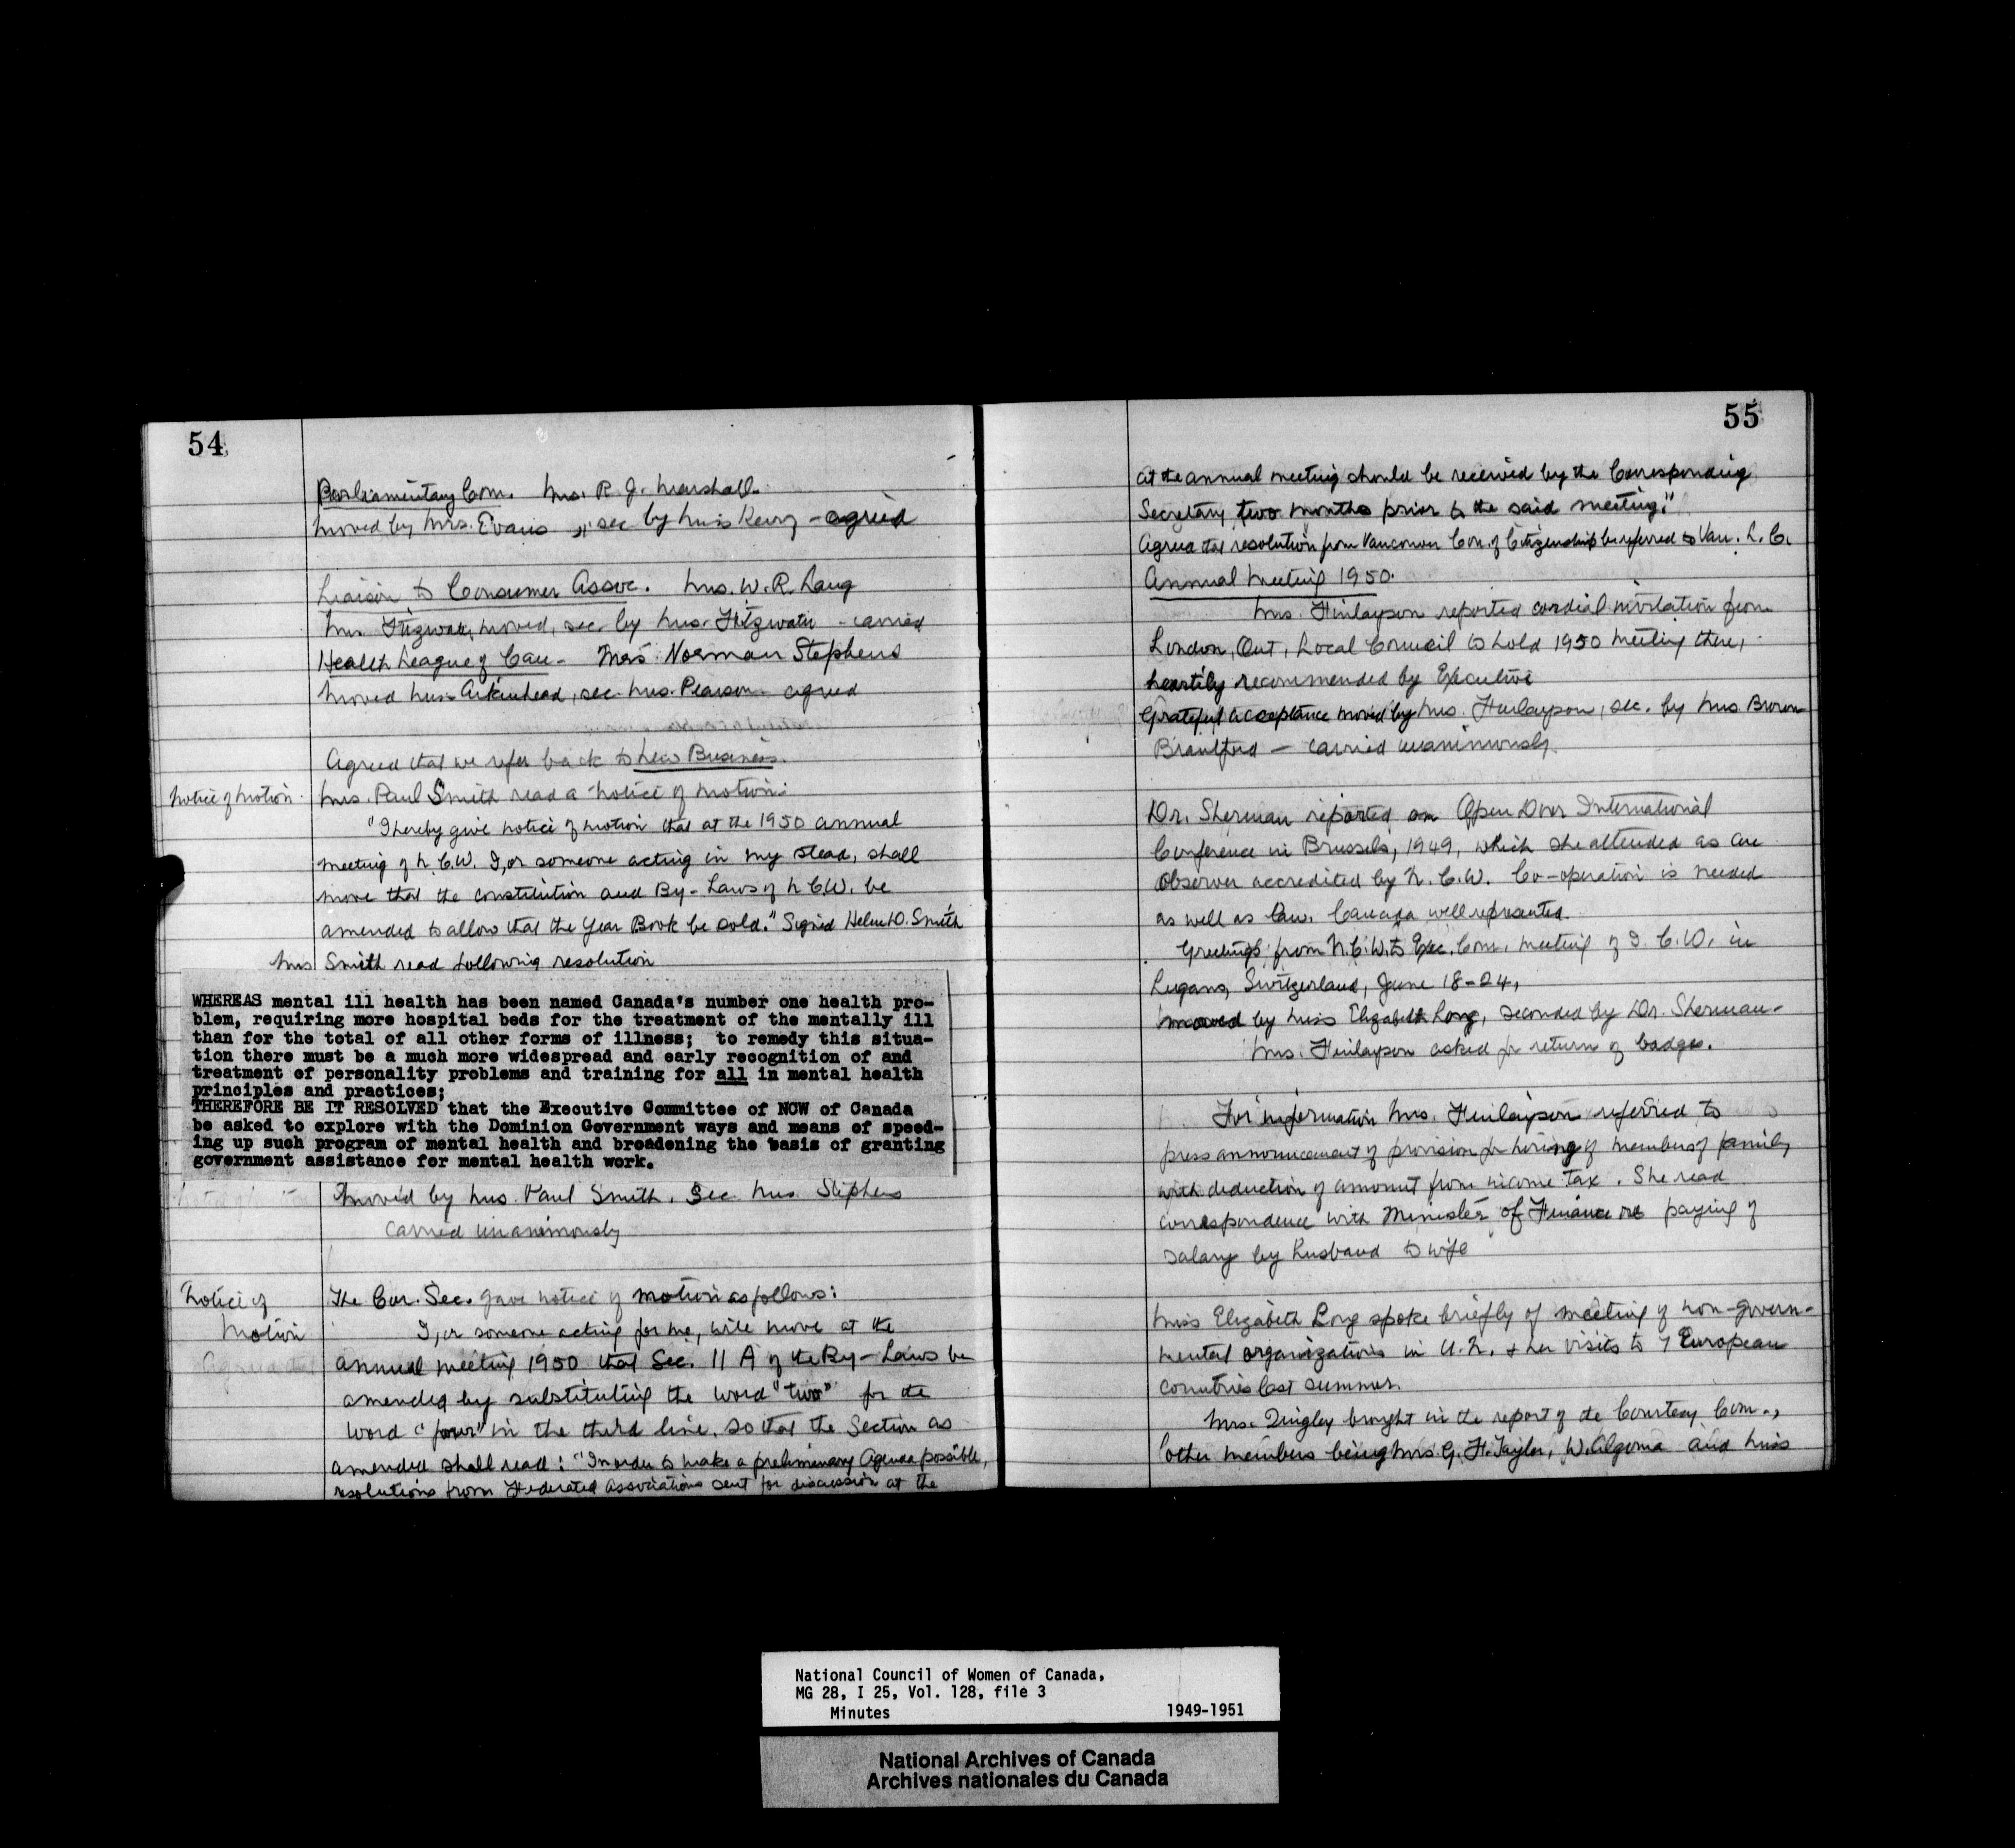 54
Parliamentary Com. Mrs. R. J. Marshall.
Moved by Mrs. Evans, sec by Miss Kerry - agreed
Liaison to Consumer Assoc. Mrs. W. R. Lang
Mrs. Fitzwater moved, sec. by Mrs. Fitzwater - carried
Health League of Can. - Mrs. Norman Stephens
Moved Mrs. Aikenhead, sec. Mrs. Pearson - agreed
Agreed that we refer back to New Business.
Notice of Motion.
Mrs. Paul Smith read a notice of motion:
"I hereby give notice of motion that at the 1950 annual
meeting of N.C.W. I, or someone acting in my stead, shall
move that the constitution and By-Laws of N.C.W. be
amended to allow that the Year Book be sold." Signed Helen D. Smith
Mrs Smith read following resolution
WHEREAS mental ill health has been named Canada's number one health pro-
blem, requiring more hospital beds for the treatment of the mentally ill
than for the total of all other forms of illness; to remedy this situa-
tion there must be a much more widespread and early recognition of and
treatment of personality problems and training for all in mental health
principles and practices;
THEREFORE BE IT RESOLVED that the Executive Committee of NCW of Canada
be asked to explore with the Dominion Government ways and means of speed-
ing up such program of mental health and broadening the basis of granting
government assistance for mental health work.
Moved by Mrs. Paul Smith, Sec. Mrs. Stephens
Carried unanimously
Notice of
Motion
The Cor. Sec. gave notice of motion as follows:
I, or someone acting for me, will move at the
annual meeting 1950 that Sec. 11 A of the By-Laws be
amended by substituting the word "two" for the
word "four" in the third line, so that the Section as
amended shall read: "In order to make a preliminary Agenda possible,
resolutions from Federated Associations sent for discussion at the
55
at the annual meeting should be received by the Corresponding
Secretary two months prior to the said meeting."
Agreed that resolution from Vancouver Con. of Citizenship be referred to Van. L. C.
Annual Meeting 1950.
Mrs. Finlayson reported cordial invitation from
London, Ont, Local Council to hold 1950 meeting there,
heartily recommended by Executive
Grateful acceptance moved by Mrs. Finlayson, sec. by Mrs Brown
Brantford - carried unanimously.
Dr. Sherman reported on Open Door International
Conference in Brussels, 1949, which she attended as an
observer accredited by N.C.W. Co-operation is needed
as well as law. Canada well represented.
Greetings from N.C.W. to Exec. Com. meeting of I.C.W. in
Lugano, Switzerland, June 18-24,
moved by Miss Elizabeth Long, seconded by Dr. Sherman -
Mrs. Finlayson asked for return of badges.
For information Mrs. Finlayson referred to
press announcement of provision for hiring of members of family
with deduction of amount from income tax. She read
correspondence with Minister of Finance re paying of
salary by husband to wife
Miss Elizabeth Long spoke briefly of meeting of non-govern-
mental organizations in U.N. & her visits to 7 European
countries last summer.
Mrs. Quigley brought in the report of the Courtesy Com.,
other members being Mrs. G. H. Taylor, W. Algoma and Miss
National Council of Women of Canada,
MG 28, I 25, Vol. 128, file 3
Minutes 1949-1951
National Archives of Canada
Archives nationales du Canada